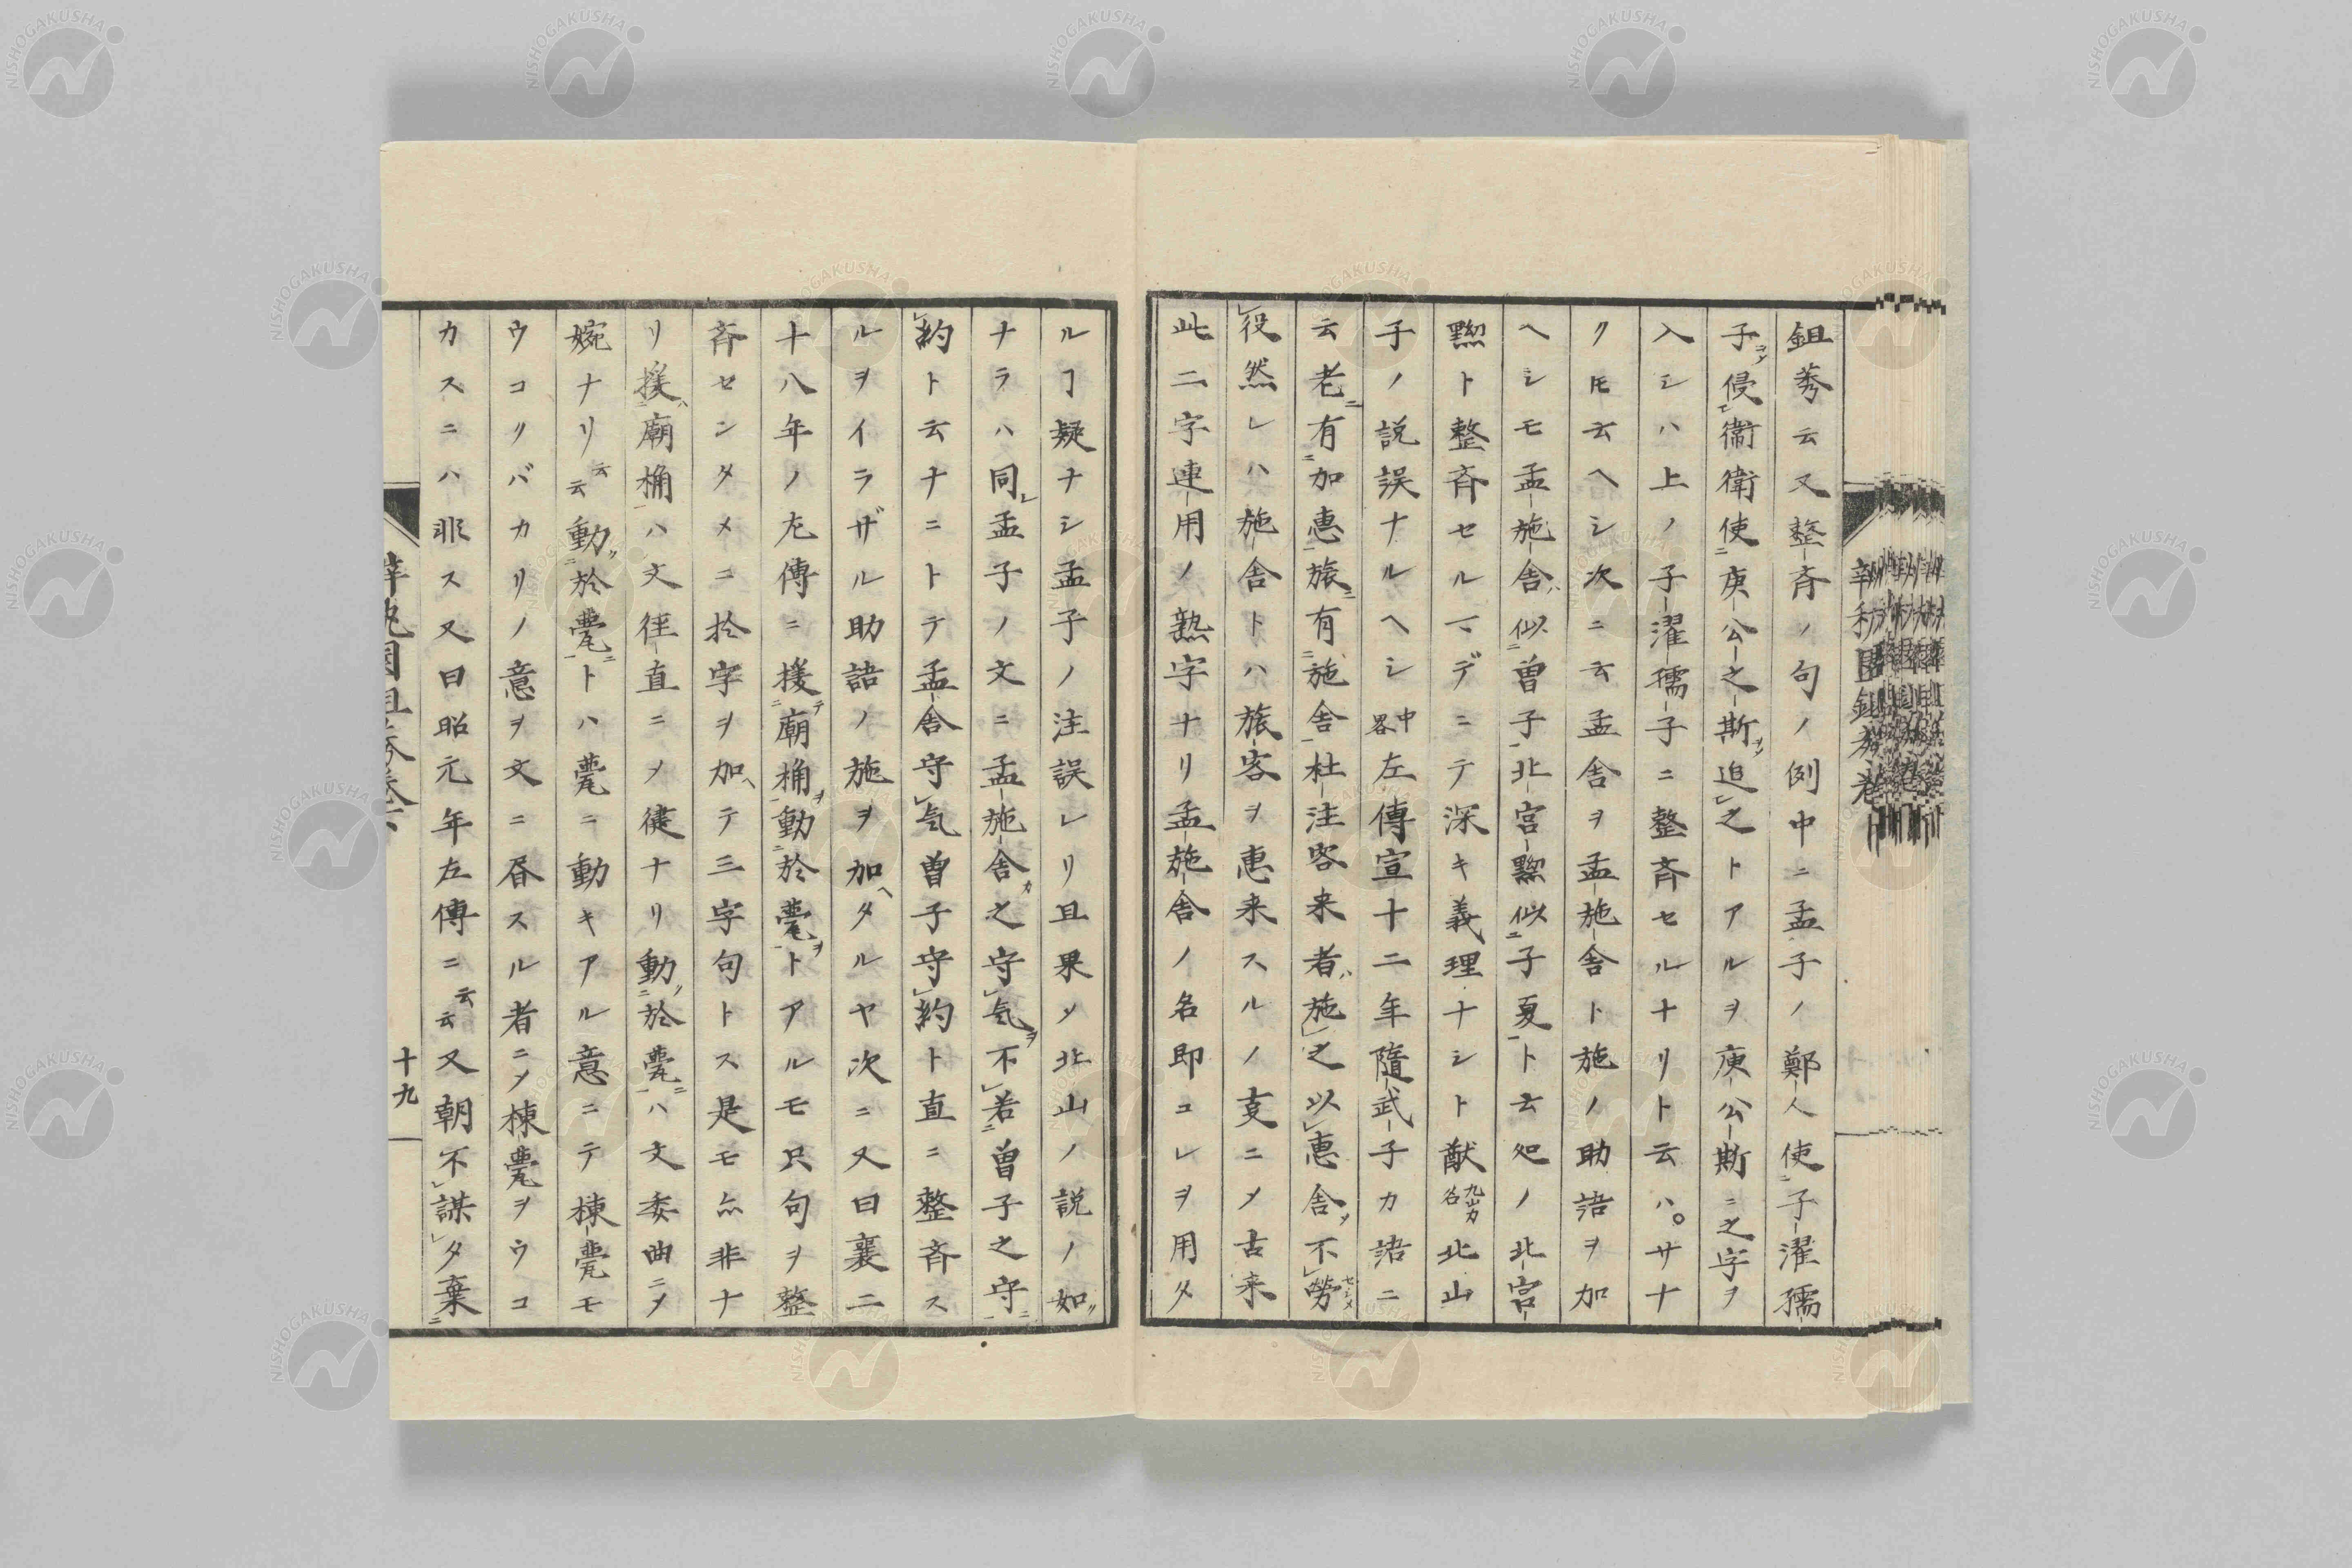 鉏莠云又整斉ノ句ノ例中ニ孟子ノ鄭人使子濯孺
子侵衞衛使庾公之斯追之トアルヲ庾公斯ニ之字ヲ
入シハ上ノ子濯孺子ニ整斉セルナリト云ハ。サナ
クトモ云ヘシ次ニ云孟舎ヲ孟施舎ト施ノ助語ヲ加
ヘシモ孟施舎ハ似曽子北宮黝似子夏ト云処ノ北宮
黝ト整斉セルマデニテ深キ義理ナシト猷九山カ名北山
子ノ説誤ナルヘシ中畧左傳宣十二年隨武子カ語ニ
云老有加惠旅有施舎杜注客来者ハ施之以惠舎不労
役然レハ施舎トハ旅客ヲ惠来スルノ支ニメ古来
此二字連用ノ熟字ナリ孟施舎ノ名即コレヲ用タ
ルヿ疑ナシ孟子ノ注誤レリ且果メ北山ノ説ノ如
ナラハ同孟子ノ文ニ孟施舎之守気不若曽子之守
約ト云ナニトテ孟舎守気曽子守約ト直ニ整斉ス
ルヲイラザル助語ノ施ヲ加ヘタルヤ次ニ又曰襄二
十八年ノ左傳ニ援廟桷動於甍トアルモ只句ヲ整
斉センタメニ於字ヲ加ヘテ三字句トス是モ亦非ナ
リ援廟桷ハ文徑直ニメ健ナリ動於甍ハ文委曲ニメ
婉ナリ云云動於甍トハ甍ニ動キアル意ニテ棟甍モ
ウコクバカリノ意ヲ文ニ昏スル者ニメ棟甍ヲウコ
カスニハ非ス又曰昭元年左傳ニ云云又朝不謀夕棄
十九